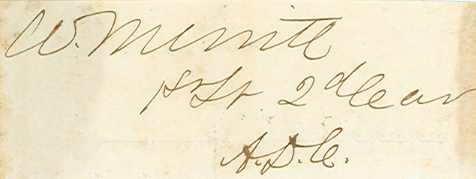 W. Merritt
1st Lt 2d Cav
A.D.C.